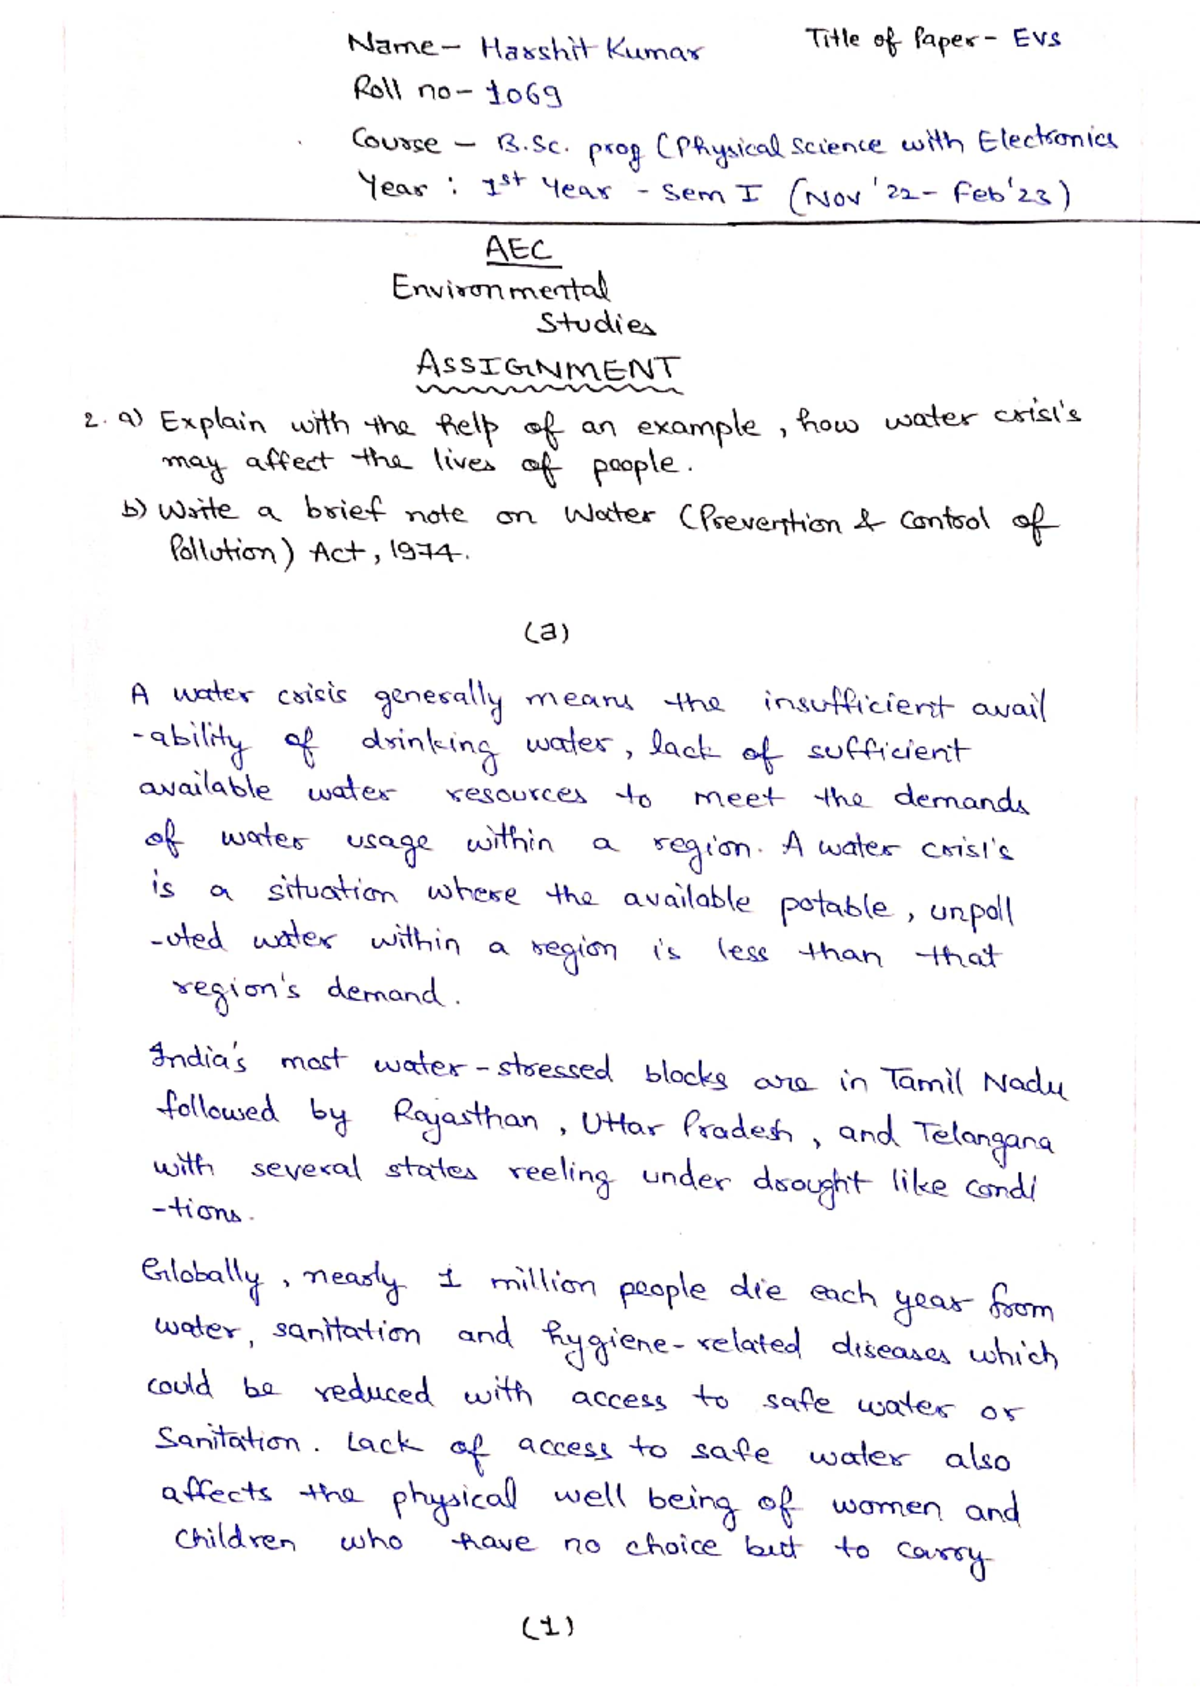 Name- Harshit Kumar Title of Paper- EVS
Roll no- 1069
Course - B.Sc. prog (Physical Science with Electronics
Year : 1st Year - Sem I (Nov '22- Feb'23)
AEC
Environmental
Studies
ASSIGNMENT
2. a) Explain with the help of an example, how water crisis
may affect the lives of people.
b) Write a brief note on Water (Prevention & Control of
Pollution) Act, 1974.
(a)
A water crisis generally means the insufficient avail
-ability of drinking water, lack of sufficient
available water resources to meet the demands
of water usage within a region. A water crisis
is a situation where the available potable, unpoll
-uted water within a region is less than that
region's demand.
India's most water-stressed blocks are in Tamil Nadu
followed by Rajasthan, Uttar Pradesh, and Telangana
with several states reeling under drought like condi
-tions.
Globally, nearly 1 million people die each year from
water, sanitation and hygiene-related diseases which
could be reduced with access to safe water or
Sanitation. Lack of access to safe water also
affects the physical well being of women and
children who have no choice but to carry
(1)